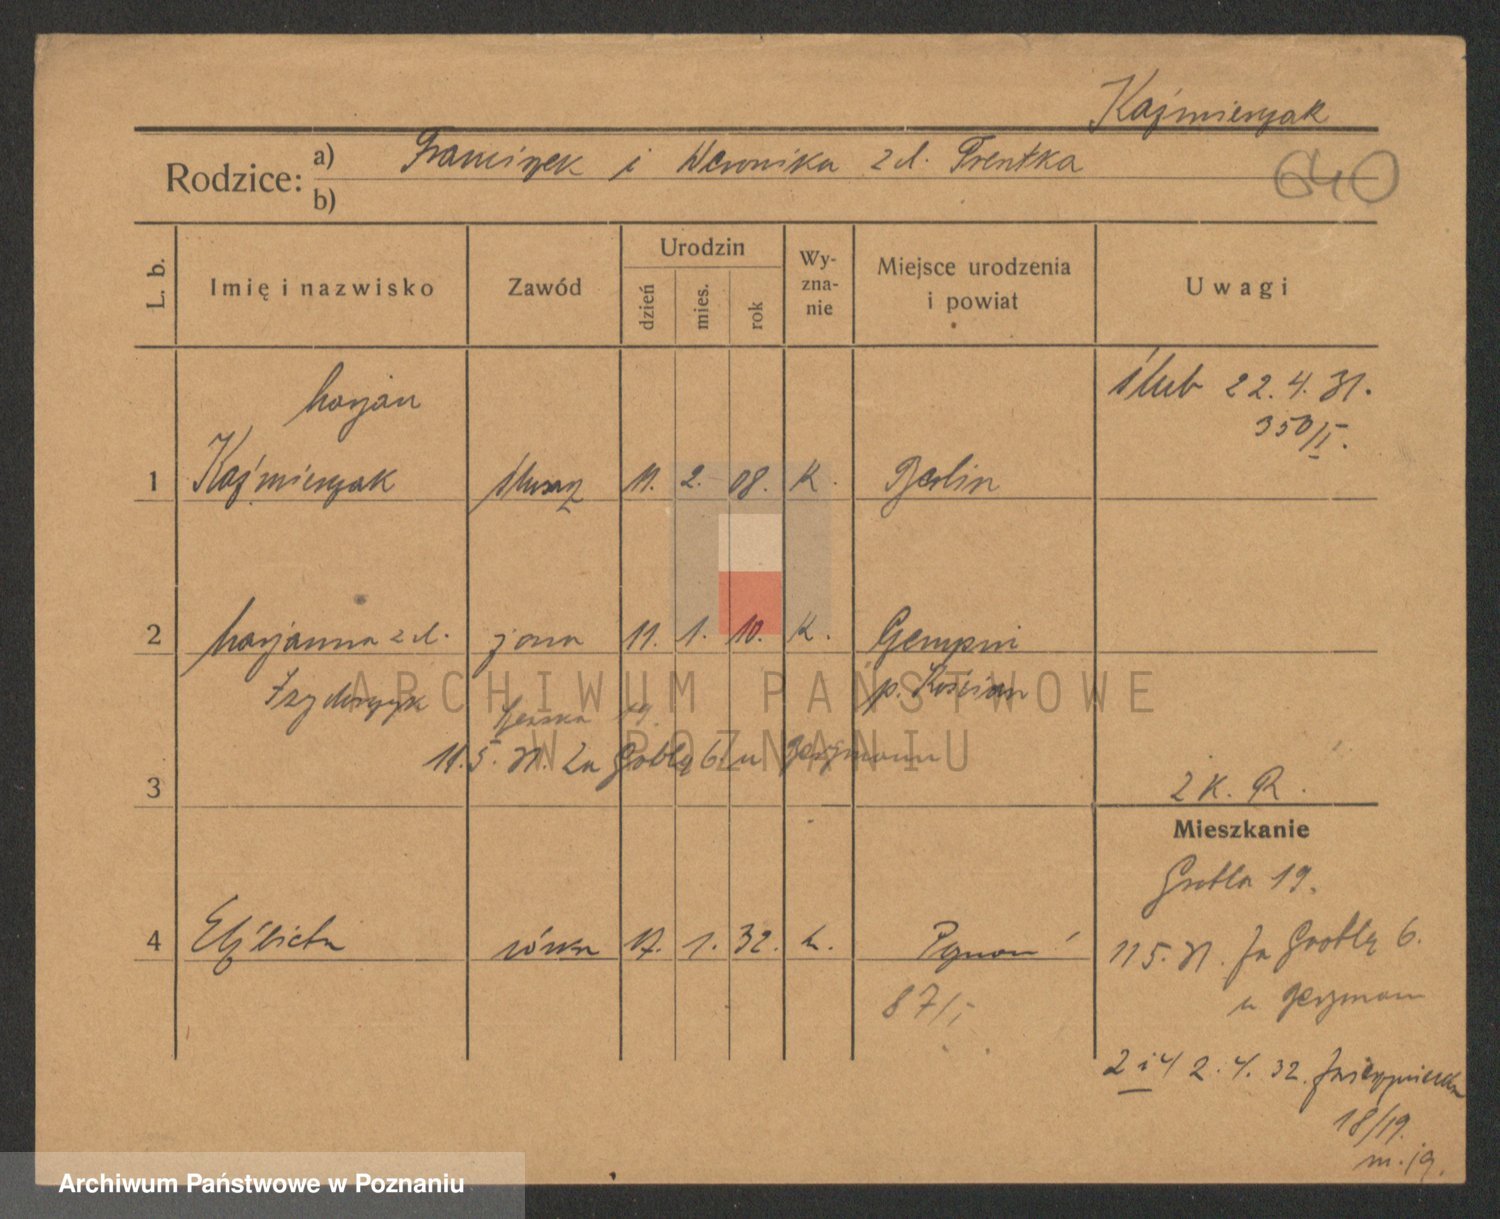 Kaźmierczak
Rodzice: a) Franciszek i Weronika z d. Frentka
b)
640
L. b.
Imię i nazwisko
Zawód
Urodzin
dzień
mies.
rok
Wy-
zna-
nie
Miejsce urodzenia
i powiat
Uwagi
Marjan
ślub 22.4.31.
350/II.
1 Kaźmierczak ślusarz 11. 2. 08. K. Berlin
2 Marjanna z d. żona 11. 1. 10. K. Gempin
Izydorczyk p. Kościan
19.
11.5.31. Za Groblą 6. u
3
2 K. R.
Mieszkanie
Grobla 19.
4 Elżbieta córka 17. 1. 32. K. Poznań
11 5. 31. Za Groblą 6.
87/I
u
2 i 4 2. 4. 32.
18/19.
m. 19.
ARCHIWUM PAŃSTWOWE
W POZNANIU
Archiwum Państwowe w Poznaniu